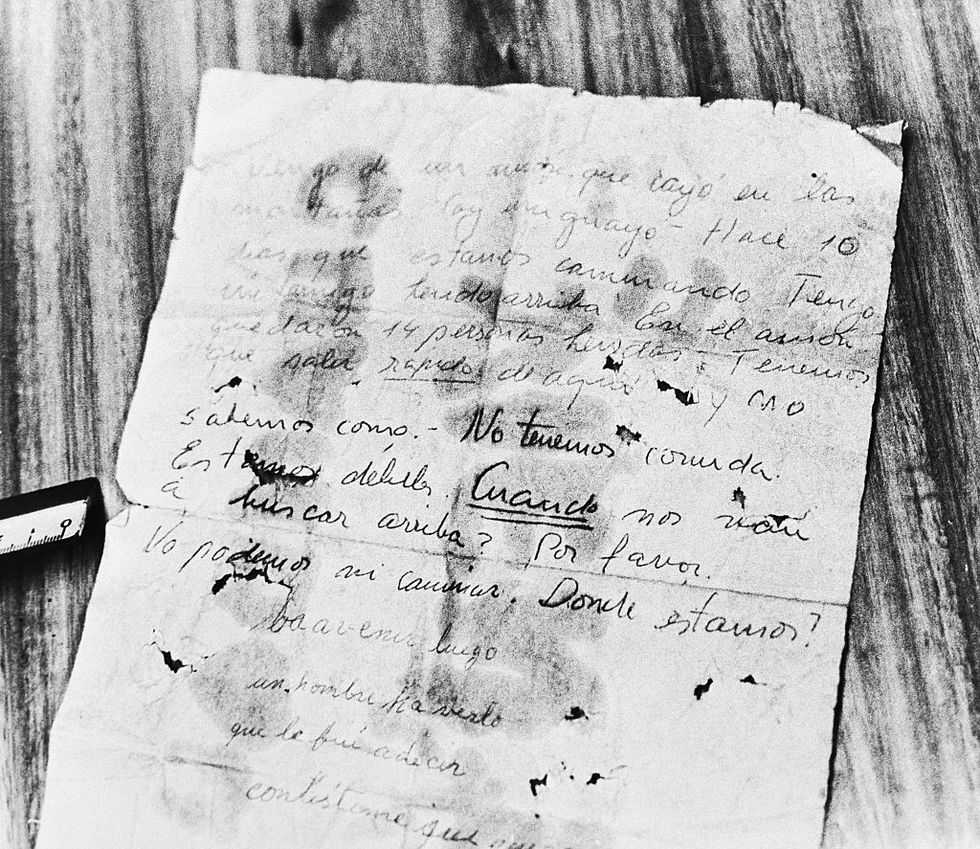 Vengo de un avión que cayó en las
montañas. Soy uruguayo - Hace 10
días que estamos caminando Tengo
un amigo herido arriba. En el avión
quedaron 14 personas heridas - Tenemos
que salir rápido de aquí y no
sabemos cómo.- No tenemos comida.
Estamos débiles. Cuando nos van
a buscar arriba? Por favor.
No podemos ni caminar. Donde estamos?
ba a venir luego
un hombre ha verlo
que le fué a decir
contésteme que
9